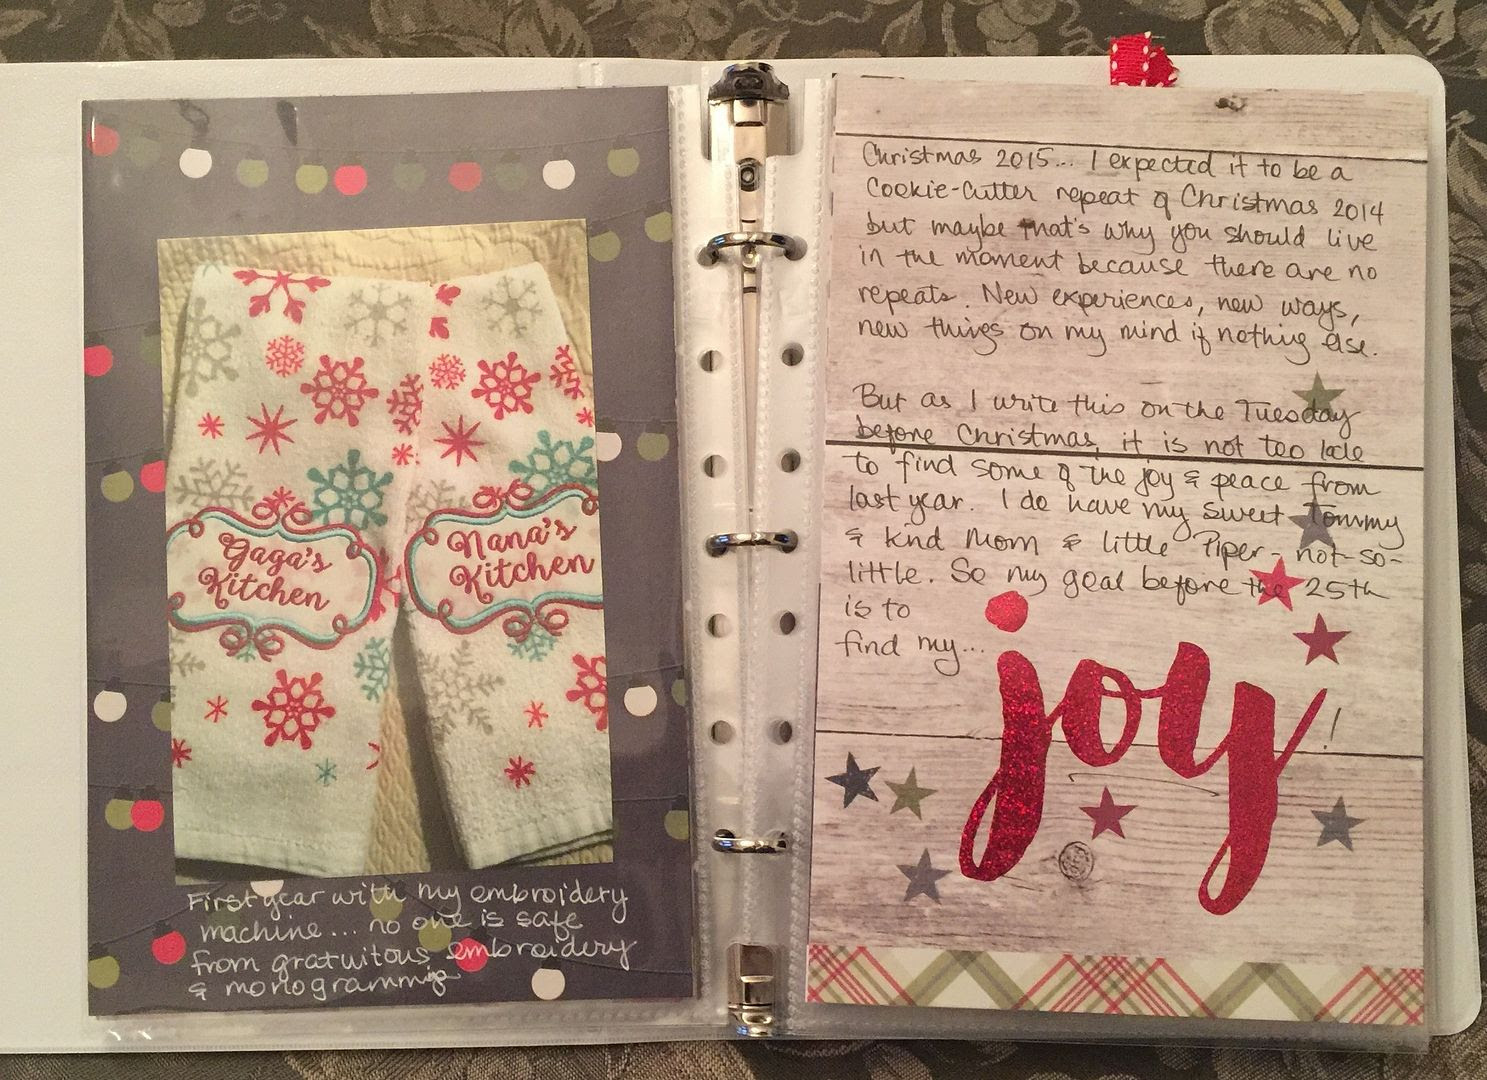 Gaga's
Kitchen
Nana's
Kitchen
First year with my embroidery
machine... no one is safe
from gratuitous embroidery
& monogramming
Christmas 2015... I expected it to be a
Cookie-Cutter repeat of Christmas 2014
but maybe that's why you should live
in the moment because there are no
repeats. New experiences, new ways,
new things on my mind if nothing else.
But as I write this on the Tuesday
before Christmas, it is not too late
to find some of the joy & peace from
last year. I do have my sweet Tommy
& kind Mom & little Piper - not-so-
little. So my goal before the 25th
is to
find my...
joy!